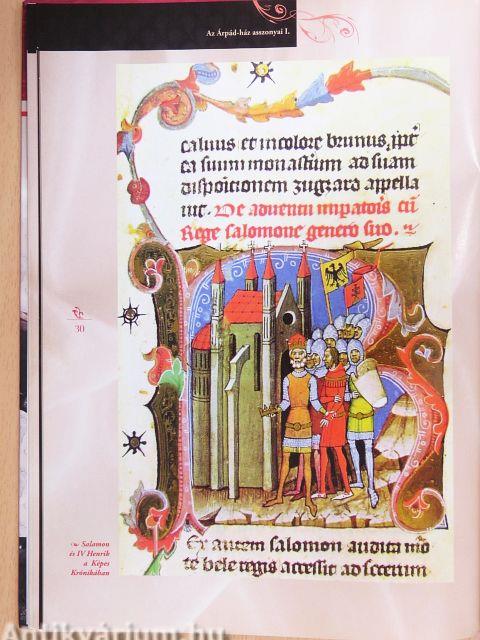 Az Árpád-ház asszonyai I.
caluus et in colore brunus, ꝓpt̄
ea suum monast̄ium ad suam
dispoic̄onem zugzard appella
uit. De aduentu imꝑatoris cū
Rege Salomone genero suo.
30
Salamon
és IV Henrik
a Képes
Krónikában
autem salomon audita mo
te bele regis accessit ad
Antikvárium.hu